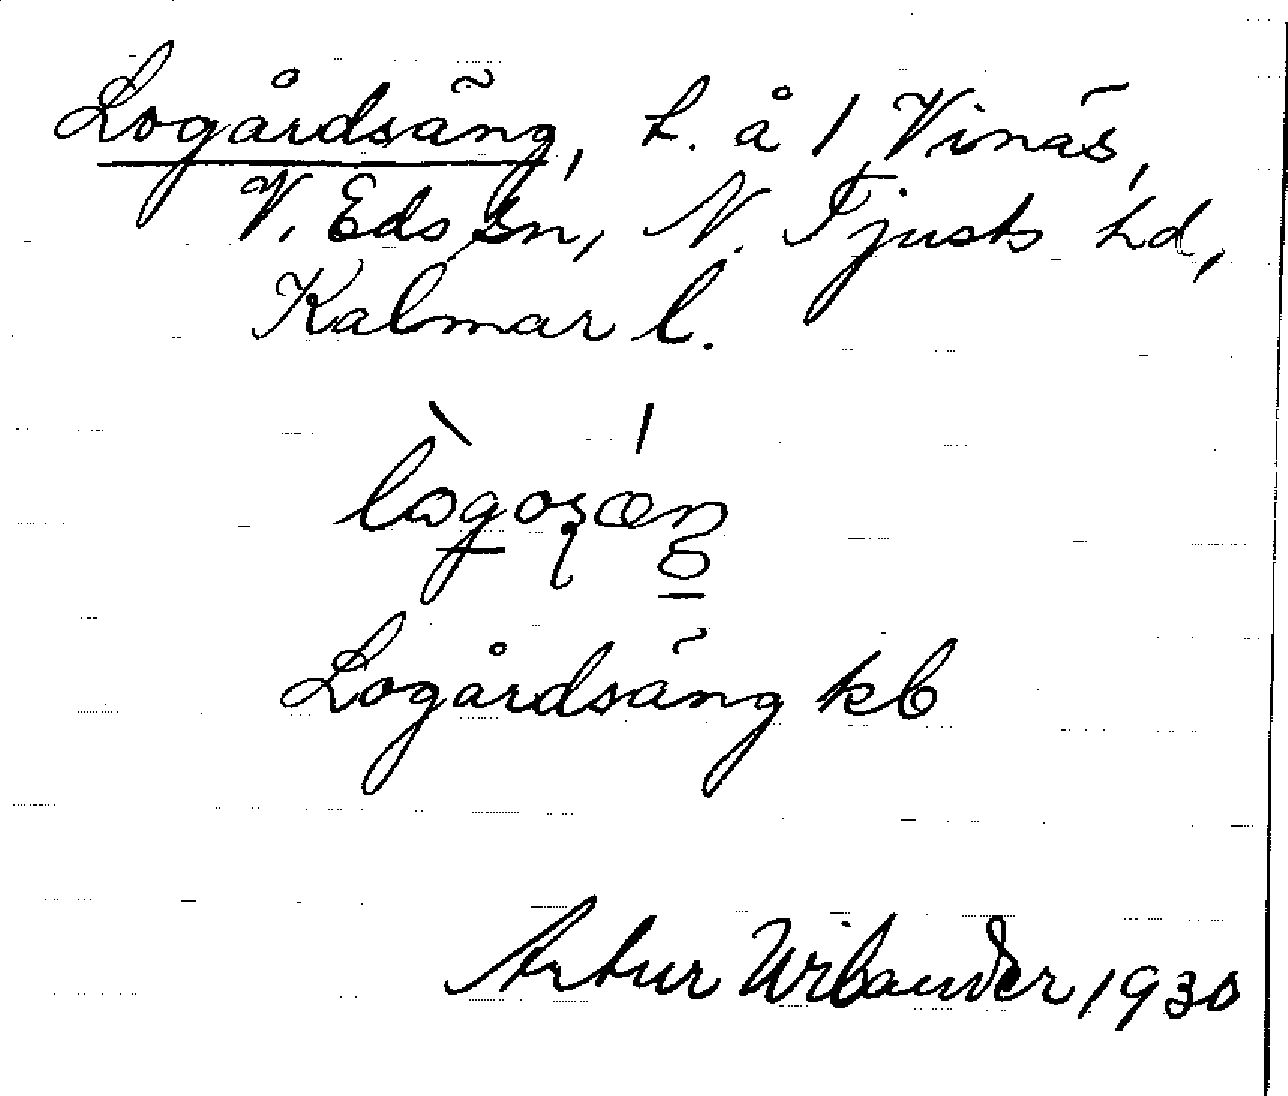 Logårdsäng, h. å 1 Vinäs,
V. Eds sn, N. Tjusts hd,
Kalmar l.
Logårdsäng kb
Artur Wilander 1930